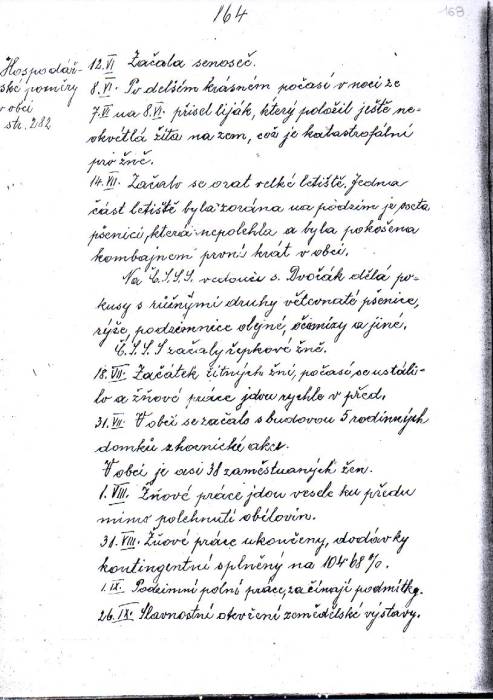 164
169
Hospodář-
ské poměry
v obci
str. 282
12.VI Začala senoseč.
8.VI. Po delším krásném počasí v noci ze
7.VI na 8.VI. přišel liják, který položil ještě ne-
okvétlá žita na zem, což je katastrofální
pro žně.
14.VII. Začalo se orat velké letiště. Jedna
část letiště byla zorána na podzim je seta
pšenicí, která nepolehla a byla pokosena
kombajnem první krát v obci.
Na Č.S.S.S. vedoucí s. Dvořák dělá po-
kusy s různými druhy větevnaté pšenice,
rýže, podzemnice olejné, čiomizy a jiné.
Č.S.S.S začaly řepkové žně.
18.VII. Začátek žitných žní, počasí se ustáli-
lo a žňové práce jdou rychle v před.
31.VII. V obci se začalo s budovou 5 rodinných
domků z hornické akce.
V obci je asi 38 zaměstnaných žen.
1.VIII. Žňové práce jdou vesele ku předu
mimo polehnutí obilovin.
31.VIII. Žňové práce ukončeny, dodávky
kontingentní splněny na 104.68%.
1.IX. Podzimní polní práce, začínají podmítky.
26.IX. Slavnostní otevření zemědělské výstavy.